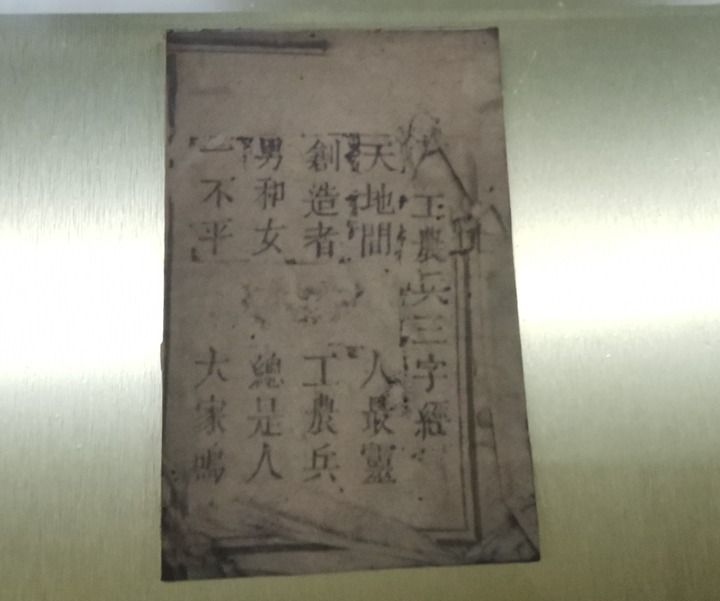 工農兵三字經
天地間 人最靈
創造者 工農兵
男和女 總是人
一不平 大家鳴